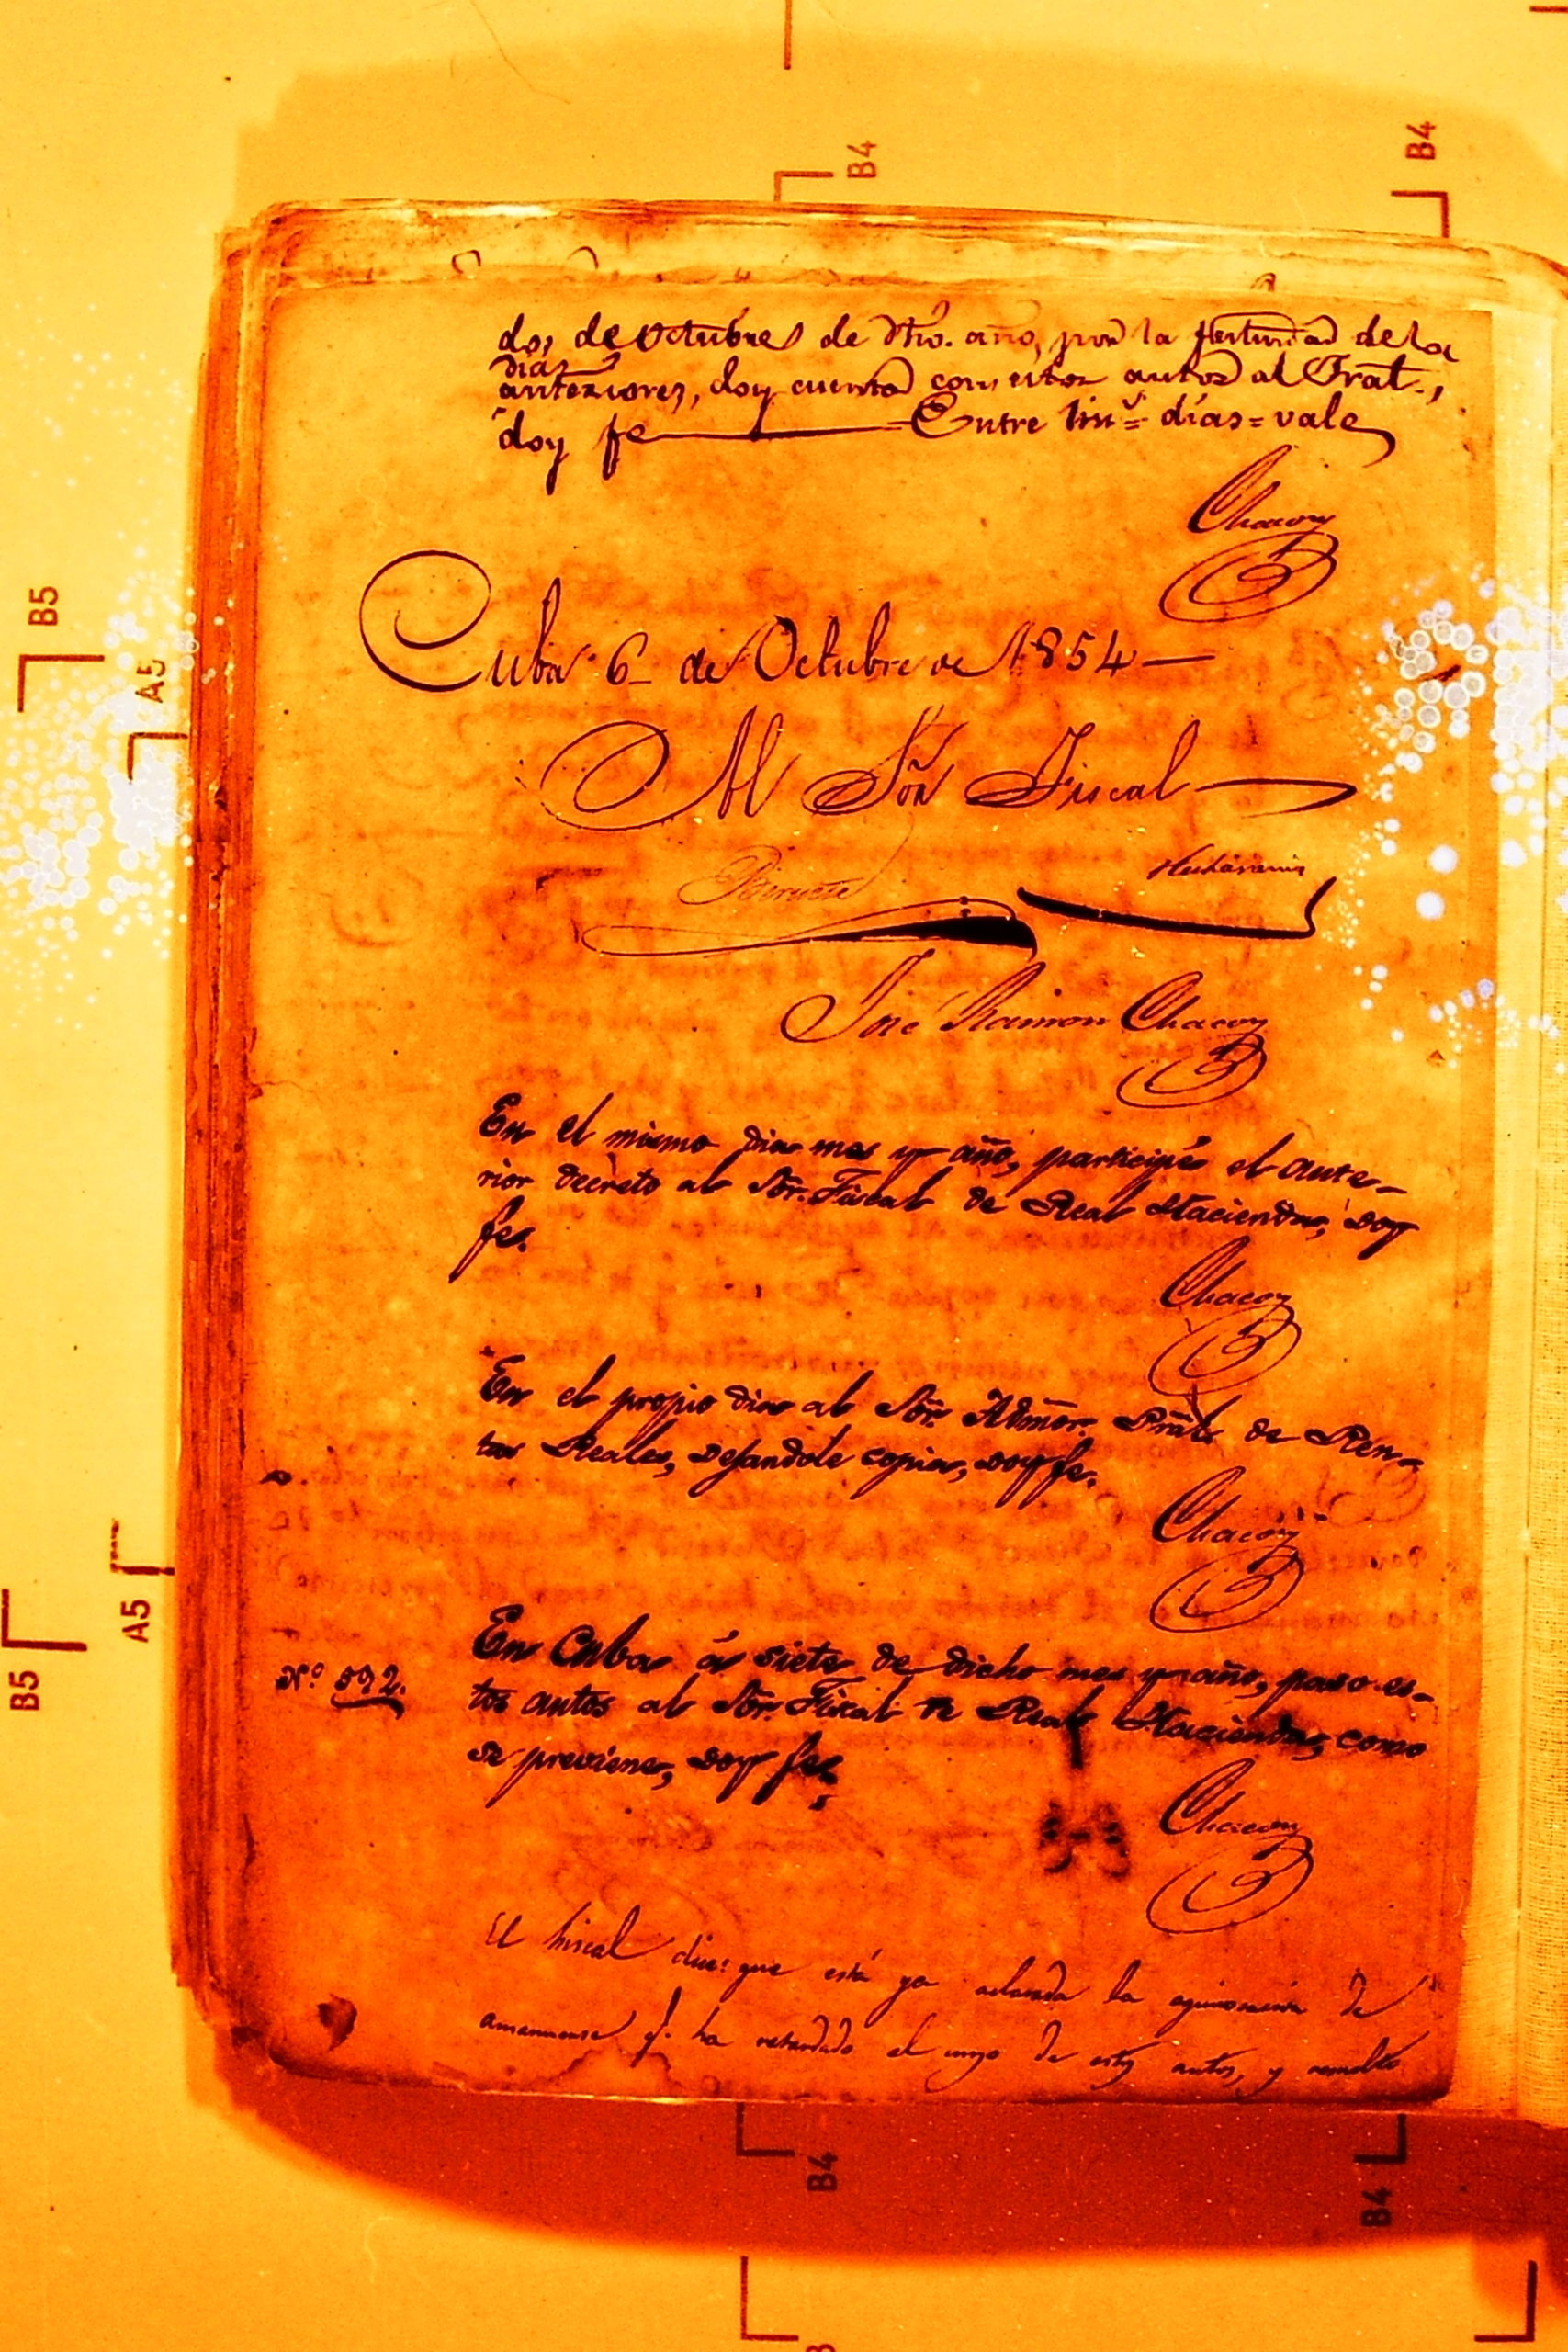 B4
B4
dos de Octubre de dho. año, por la festividad de los
días
anteriores, doy cuenta con estos autos al Tral.,
doy fe Entre lins = días = vale
Chacon
Cuba 6 de Octubre de 1854
Al Sõr Fiscal
José Ramon Chacon
En el mismo dia mes y año, participé el ante-
rior decreto al Sõr. Fiscal de Real Hacienda, doy
fe.
Chacon
En el propio dia al Sõr. Admõr. Prãl. de Ren-
tas Reales, dejandole copia, doy fe.
Chacon
En Cuba á siete de dicho mes y año, paso es-
Nº 592.
tos autos al Sõr. Fiscal de Real Hacienda, como
se previene, doy fe.
Chacon
El Fiscal dice: que está ya aclarada la de
amanuense q. ha retardado el curso de estos autos, y
B5
A5
A5
B5
B4
B4